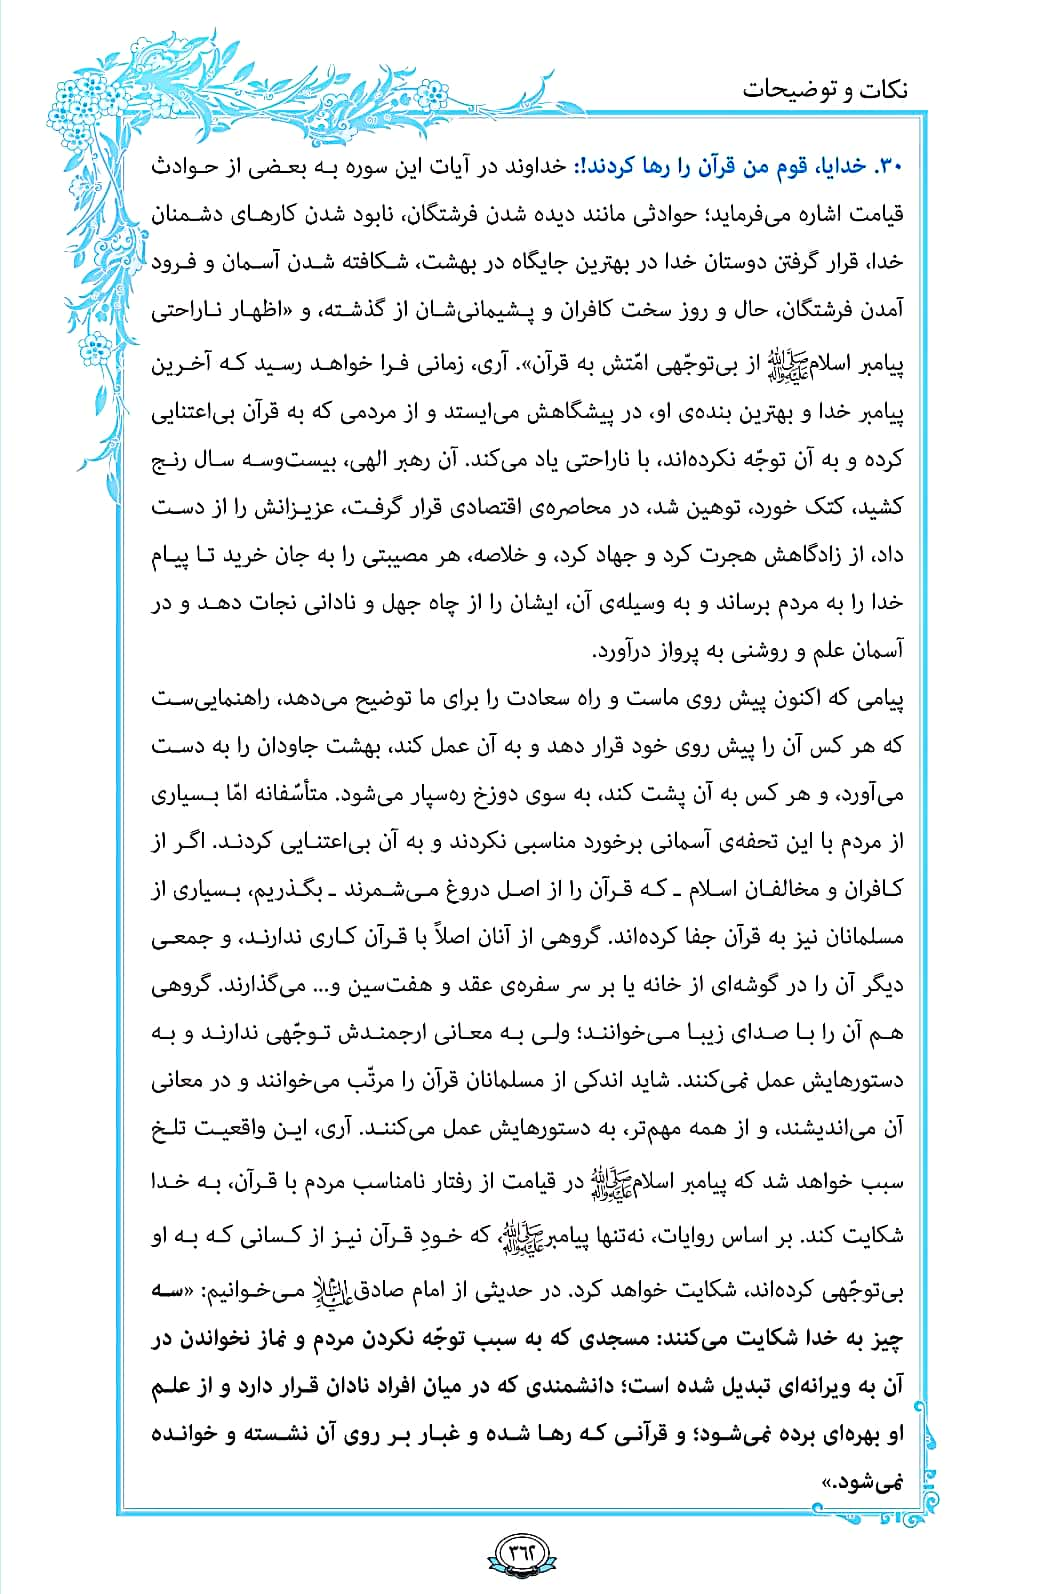 نکات و توضیحات
۳۰. خدایا، قوم من قرآن را رها کردند!: خداوند در آیات این سوره به بعضی از حوادث
قیامت اشاره می‌فرماید؛ حوادثی مانند دیده شدن فرشتگان، نابود شدن کارهای دشمنان
خدا، قرار گرفتن دوستان خدا در بهترین جایگاه در بهشت، شکافته شدن آسمان و فرود
آمدن فرشتگان، حال و روز سخت کافران و پشیمانی‌شان از گذشته، و «اظهار ناراحتی
پیامبر اسلامﷺ از بی‌توجّهی امّتش به قرآن». آری، زمانی فرا خواهد رسید که آخرین
پیامبر خدا و بهترین بنده‌ی او، در پیشگاهش می‌ایستد و از مردمی که به قرآن بی‌اعتنایی
کرده و به آن توجّه نکرده‌اند، با ناراحتی یاد می‌کند. آن رهبر الهی، بیست‌وسه سال رنج
کشید، کتک خورد، توهین شد، در محاصره‌ی اقتصادی قرار گرفت، عزیزانش را از دست
داد، از زادگاهش هجرت کرد و جهاد کرد، و خلاصه، هر مصیبتی را به جان خرید تا پیام
خدا را به مردم برساند و به وسیله‌ی آن، ایشان را از چاه جهل و نادانی نجات دهد و در
آسمان علم و روشنی به پرواز درآورد.
پیامی که اکنون پیش روی ماست و راه سعادت را برای ما توضیح می‌دهد، راهنمایی‌ست
که هر کس آن را پیش روی خود قرار دهد و به آن عمل کند، بهشت جاودان را به دست
می‌آورد، و هر کس به آن پشت کند، به سوی دوزخ ره‌سپار می‌شود. متأسّفانه امّا بسیاری
از مردم با این تحفه‌ی آسمانی برخورد مناسبی نکردند و به آن بی‌اعتنایی کردند. اگر از
کافران و مخالفان اسلام ـ که قرآن را از اصل دروغ می‌شمرند ـ بگذریم، بسیاری از
مسلمانان نیز به قرآن جفا کرده‌اند. گروهی از آنان اصلاً با قرآن کاری ندارند، و جمعی
دیگر آن را در گوشه‌ای از خانه یا بر سر سفره‌ی عقد و هفت‌سین و... می‌گذارند. گروهی
هم آن را با صدای زیبا می‌خوانند؛ ولی به معانی ارجمندش توجّهی ندارند و به
دستورهایش عمل نمی‌کنند. شاید اندکی از مسلمانان قرآن را مرتّب می‌خوانند و در معانی
آن می‌اندیشند، و از همه مهم‌تر، به دستورهایش عمل می‌کنند. آری، این واقعیت تلخ
سبب خواهد شد که پیامبر اسلامﷺ در قیامت از رفتار نامناسب مردم با قرآن، به خدا
شکایت کند. بر اساس روایات، نه‌تنها پیامبرﷺ، که خودِ قرآن نیز از کسانی که به او
بی‌توجّهی کرده‌اند، شکایت خواهد کرد. در حدیثی از امام صادق علیه‌السلام می‌خوانیم: «سه
چیز به خدا شکایت می‌کنند: مسجدی که به سبب توجّه نکردن مردم و نماز نخواندن در
آن به ویرانه‌ای تبدیل شده است؛ دانشمندی که در میان افراد نادان قرار دارد و از علم
او بهره‌ای برده نمی‌شود؛ و قرآنی که رها شده و غبار بر روی آن نشسته و خوانده
نمی‌شود.»
۳۶۲